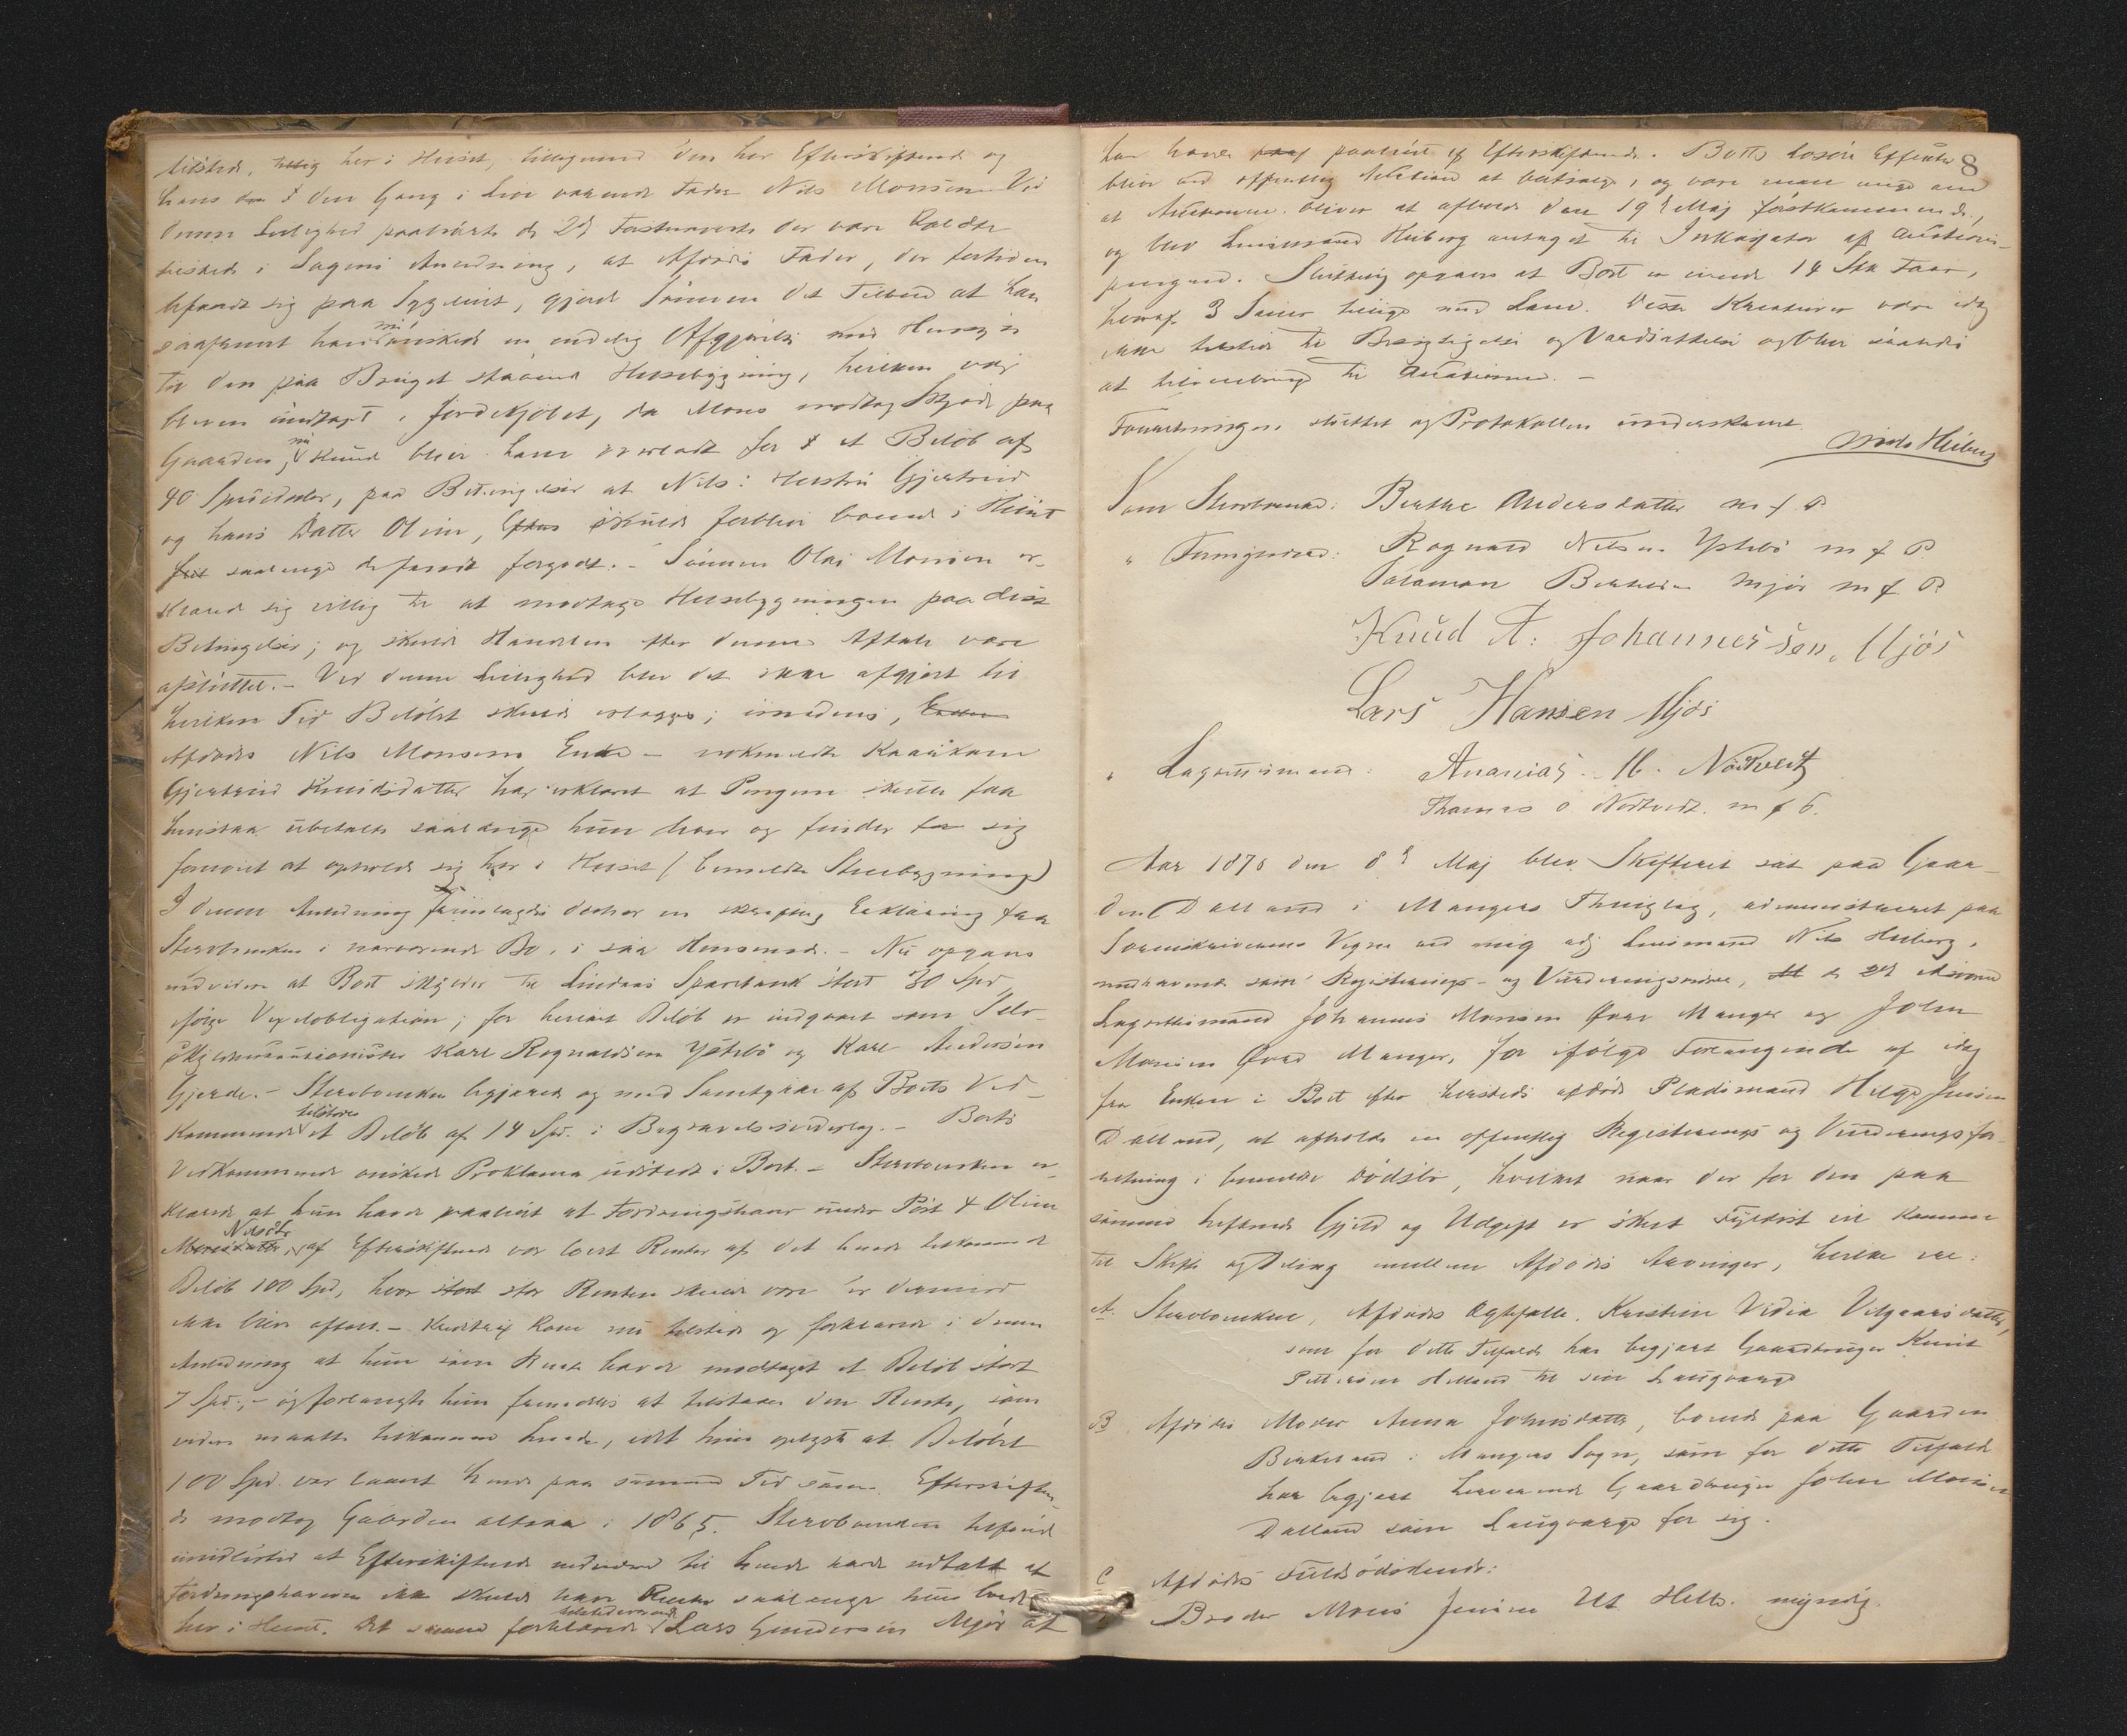 tilstede, her i Huset, tilligemed den her Efterskiftende og
hans den Gang i Live værende Fader Nils Monsen. Ved
denne Leilighed paahørte de 2de Testnævnte der vare kaldte
tilstede i Sagens Anledning, at Afdødes Fader, der
befandt sig paa Sygeleiet, gjorde Sønnen det Tilbud at han
saafremt han nu ønskede en endelig Afgjørelse med Hensyn
til den paa Bruget staaende Husebygning, hvilken
bleven undtagt i Jordekjøbet, da Mons modtog Skjøde paa
Gaarden, nu kunde blive ham overladt for et Beløb af
40 Speciedaler, paa Betingelse at Nils: Hustru Gjertrud
og hans Datter Oline, skulde forblive boende i Huset
saalenge de fandt forgodt. - Sønnen Olai Monsen er-
klærede sig villig til at modtage Husebygningen paa disse
Betingelser; og skulde Handelen efter denne Aftale være
afsluttet. - Ved denne Leilighed blev det ikke afgjort til
hvilken Tid Beløbet skulde erlægges; imidens,
Afdødes Nils Monsens Enke - nokmeldte Kaarkone
Gjertrud Knudsdatter har erklæret at Pengene skulle faa
henstaa ubetalte saalænge hun lever og finder sig
fornøiet at opholde sig her i Huset (bemeldte Stuebygning)
I denne Anledning fremlagdes derhos en skriftlig Erklæring fra
Stervbenken i nærværende Bo, i saa Henseende. - Nu opgaves
endvidere at Boet skylder til Lindaas Sparebank stort 30 Spd
ifølge Vexelobligation; for hvilket Beløb er indgaaet som Selv-
skyldnercautionister Karl Rognaldsen Ystebø og Karl Andersen
Gjerde. - Stervbenken begjærede og med Samtykke af Boets Ved-
kommende tilstodes et Beløb af 14 Spd. i Begravelsesudlæg. - Boets
Vedkommende ønskede Proklama udstedt i Boet. - Stervbenken er-
klærede at hun havde paahørt at Fordringshaver under Post 4 Oline
Nilsdtr af Efterskiftende var lovet Renter af det hende tilkommende
Beløb 100 Spd, hvor stor Renten skulde være er derimod
ikke blev aftalt. - Kreditrix kom nu tilstede og forklarede i denne
Anledning at hun som Rente havde modtaget et Beløb stort
7 Spd., - og forlangte hun fremdeles at tilstaaes den Rente, som
videre maatte tilkomme hende, idet hun oplyste at Beløbet
100 Spd. var laant hende paa samme Tid som Efterskiften-
de modtog Gaarden altsaa i 1865. Stervbenken tilføiede
imidlertid at Efterskiftende til hende havde udtalt at
Fordringshaveren ikke skulde have Renter saalænge hun boede
her i Huset. Det samme forklarede tilstedeværende Lars Gundersen Mjøs at
8
han havde paahørt af Efterskiftende. Boets Løsøre Effekter
blive ved offentlig Auktion at bortsælge, og vare man enige om
at Auktionen bliver at afholde den 19de Maj førstkommende,
og blev Lensmand Heiberg antaget til Inkassator af Auktions-
pengene. Sluttelig opgaves at Boet er eiende 14 Stk Faar,
heraf 3 Sauer tillige med Lam. Disse Kreaturer vare idag
ikke tilstede til Besigtigelse og Værdsættelse og bliver saaledes
at tilveiebringe til Auktionen. -
Forretningen sluttet og Protokollen underskrevet.
Nils Heiberg
Som Stervbenke: Berthe Andersdatter m. f. P.
" Formyndere: Rognald Nilsen Ystebø m f P.
Salamon Mjøs m f P.
Knud A: Johannessen. Mjøs
Lars Hansen Mjøs
" Lagrettesmænd: Ananias M. Nødtvedt
Thomas O Nødtvedt. m f P.
Aar 1878 den 8de Maj blev Skifteret sat paa Gaar-
den Dalland i Mangers Thinglag, administreret paa
Sorenskriverens Vegne ved mig adj Lensmand Nils Heiberg,
medhavende som Registerings- og Vurderingsmænd, de 2de edsvorne
Lagrettesmænd Johannes Monsen Øvre Manger og John
Monsen Øvre Manger, for ifølge Forlangende af idag
fra Enken i Boet efter hersteds afdøde Pladsmand Helge Jensen
Dalland, at afholde en offentlig Registerings og Vurderingsfor-
retning i bemeldte Dødsbo, hvilket naar der for den paa
samme heftende Gjeld og Udgift er skeet Fyldest vil komme
til Skifte og Deling mellem Afdødes Arvinger, hvilke ere:
A. Stervbenken, Afdødes Ægtefælle. Kristine Vidia Vilgaarsdatter,
som for dette Tilfælde har begjært Gaardbruger Knut
Pettersen Helland til sin Laugværge
B. Afdødes Moder Anna Johnsdatter, boende paa Gaarden
Birkeland i Mangers Sogn, som for dette Tilfælde
har begjært herværende Gaardbruger John Monsen
Dalland som Laugværge for sig.
C Afdødes Fuldsødskende:
Broder Mons Jensen Ut Helle. myndig.